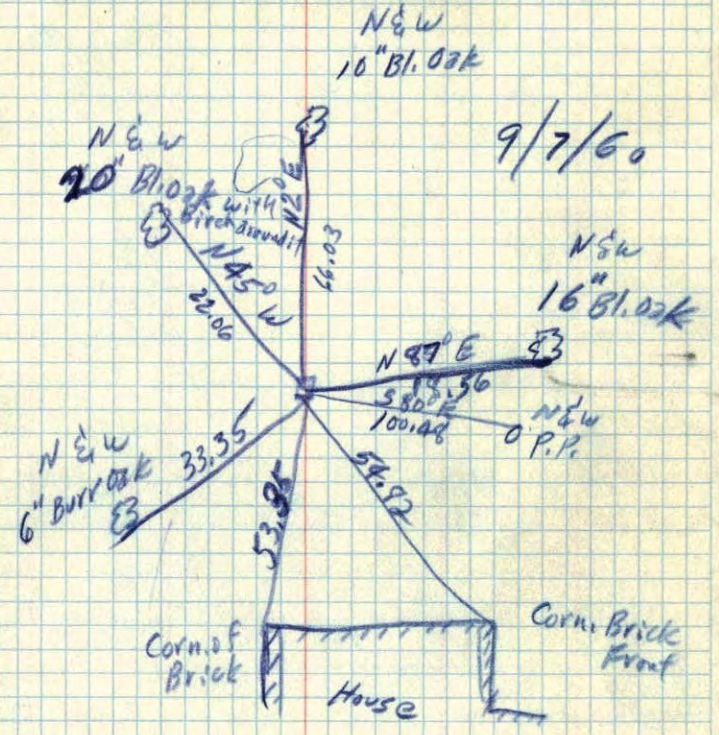 N & W
10" Bl. Oak
9/7/60
N & W
20" Bl. oak with
Birch around it
N2° E
66.03
N45° W
22.06
N & W
16" Bl. oak
N 87° E
18.56
S 80° E
100.48
N & W
P.P.
N & W
6" Burr oak
33.35
53.85
54.92
Corn. of
Brick
House
Corn. Brick
Front